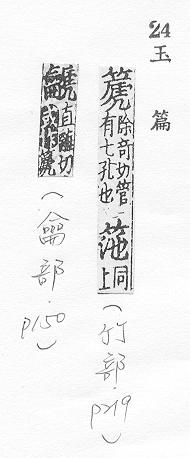 24 玉篇
篪除奇切管有七孔也筂同上
(竹部.p219)
䶵直離切或作篪
(龠部.p150)